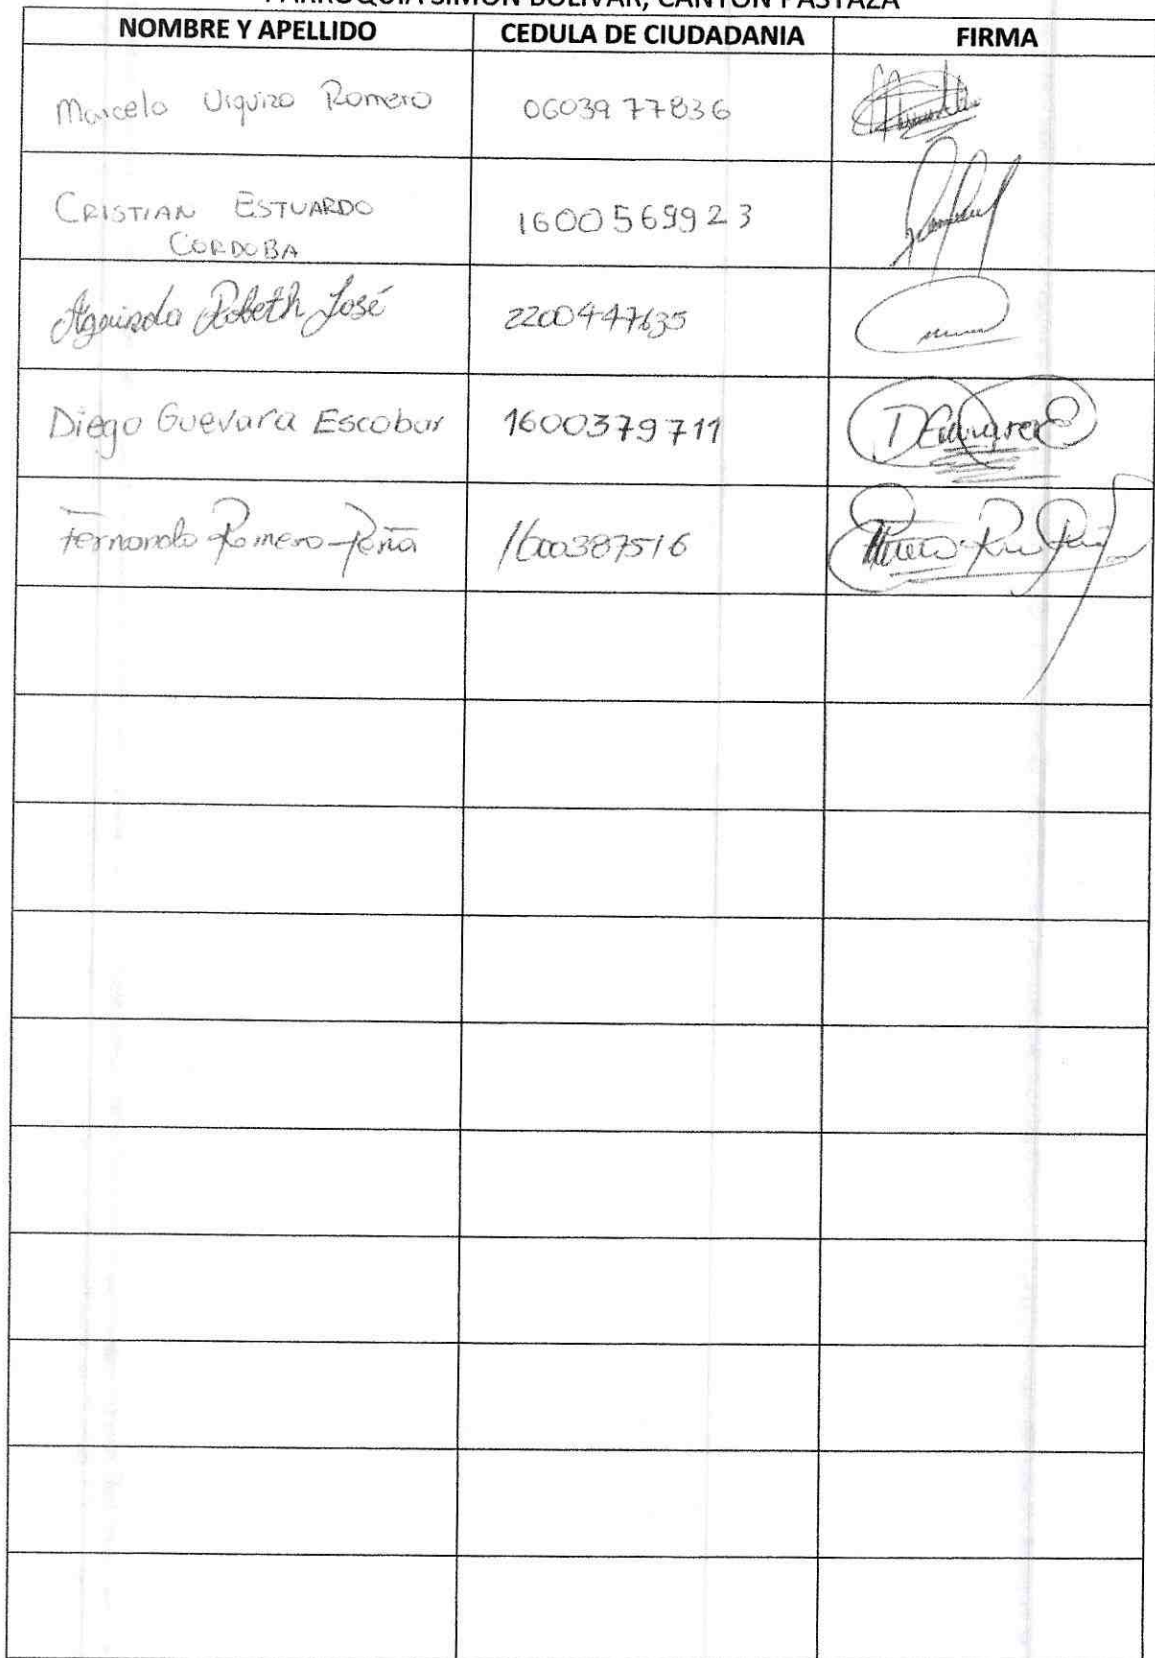 PARROQUIA SIMON BOLIVAR, CANTON PASTAZA
NOMBRE Y APELLIDO CEDULA DE CIUDADANIA FIRMA
Marcelo Urquizo Romero 0603977836
CRISTIAN ESTUARDO
CORDOBA 1600569923
Aguinda Robeth José 2200447635
Diego Guevara Escobar 1600379711
Fernando Romero Peña 1600387516